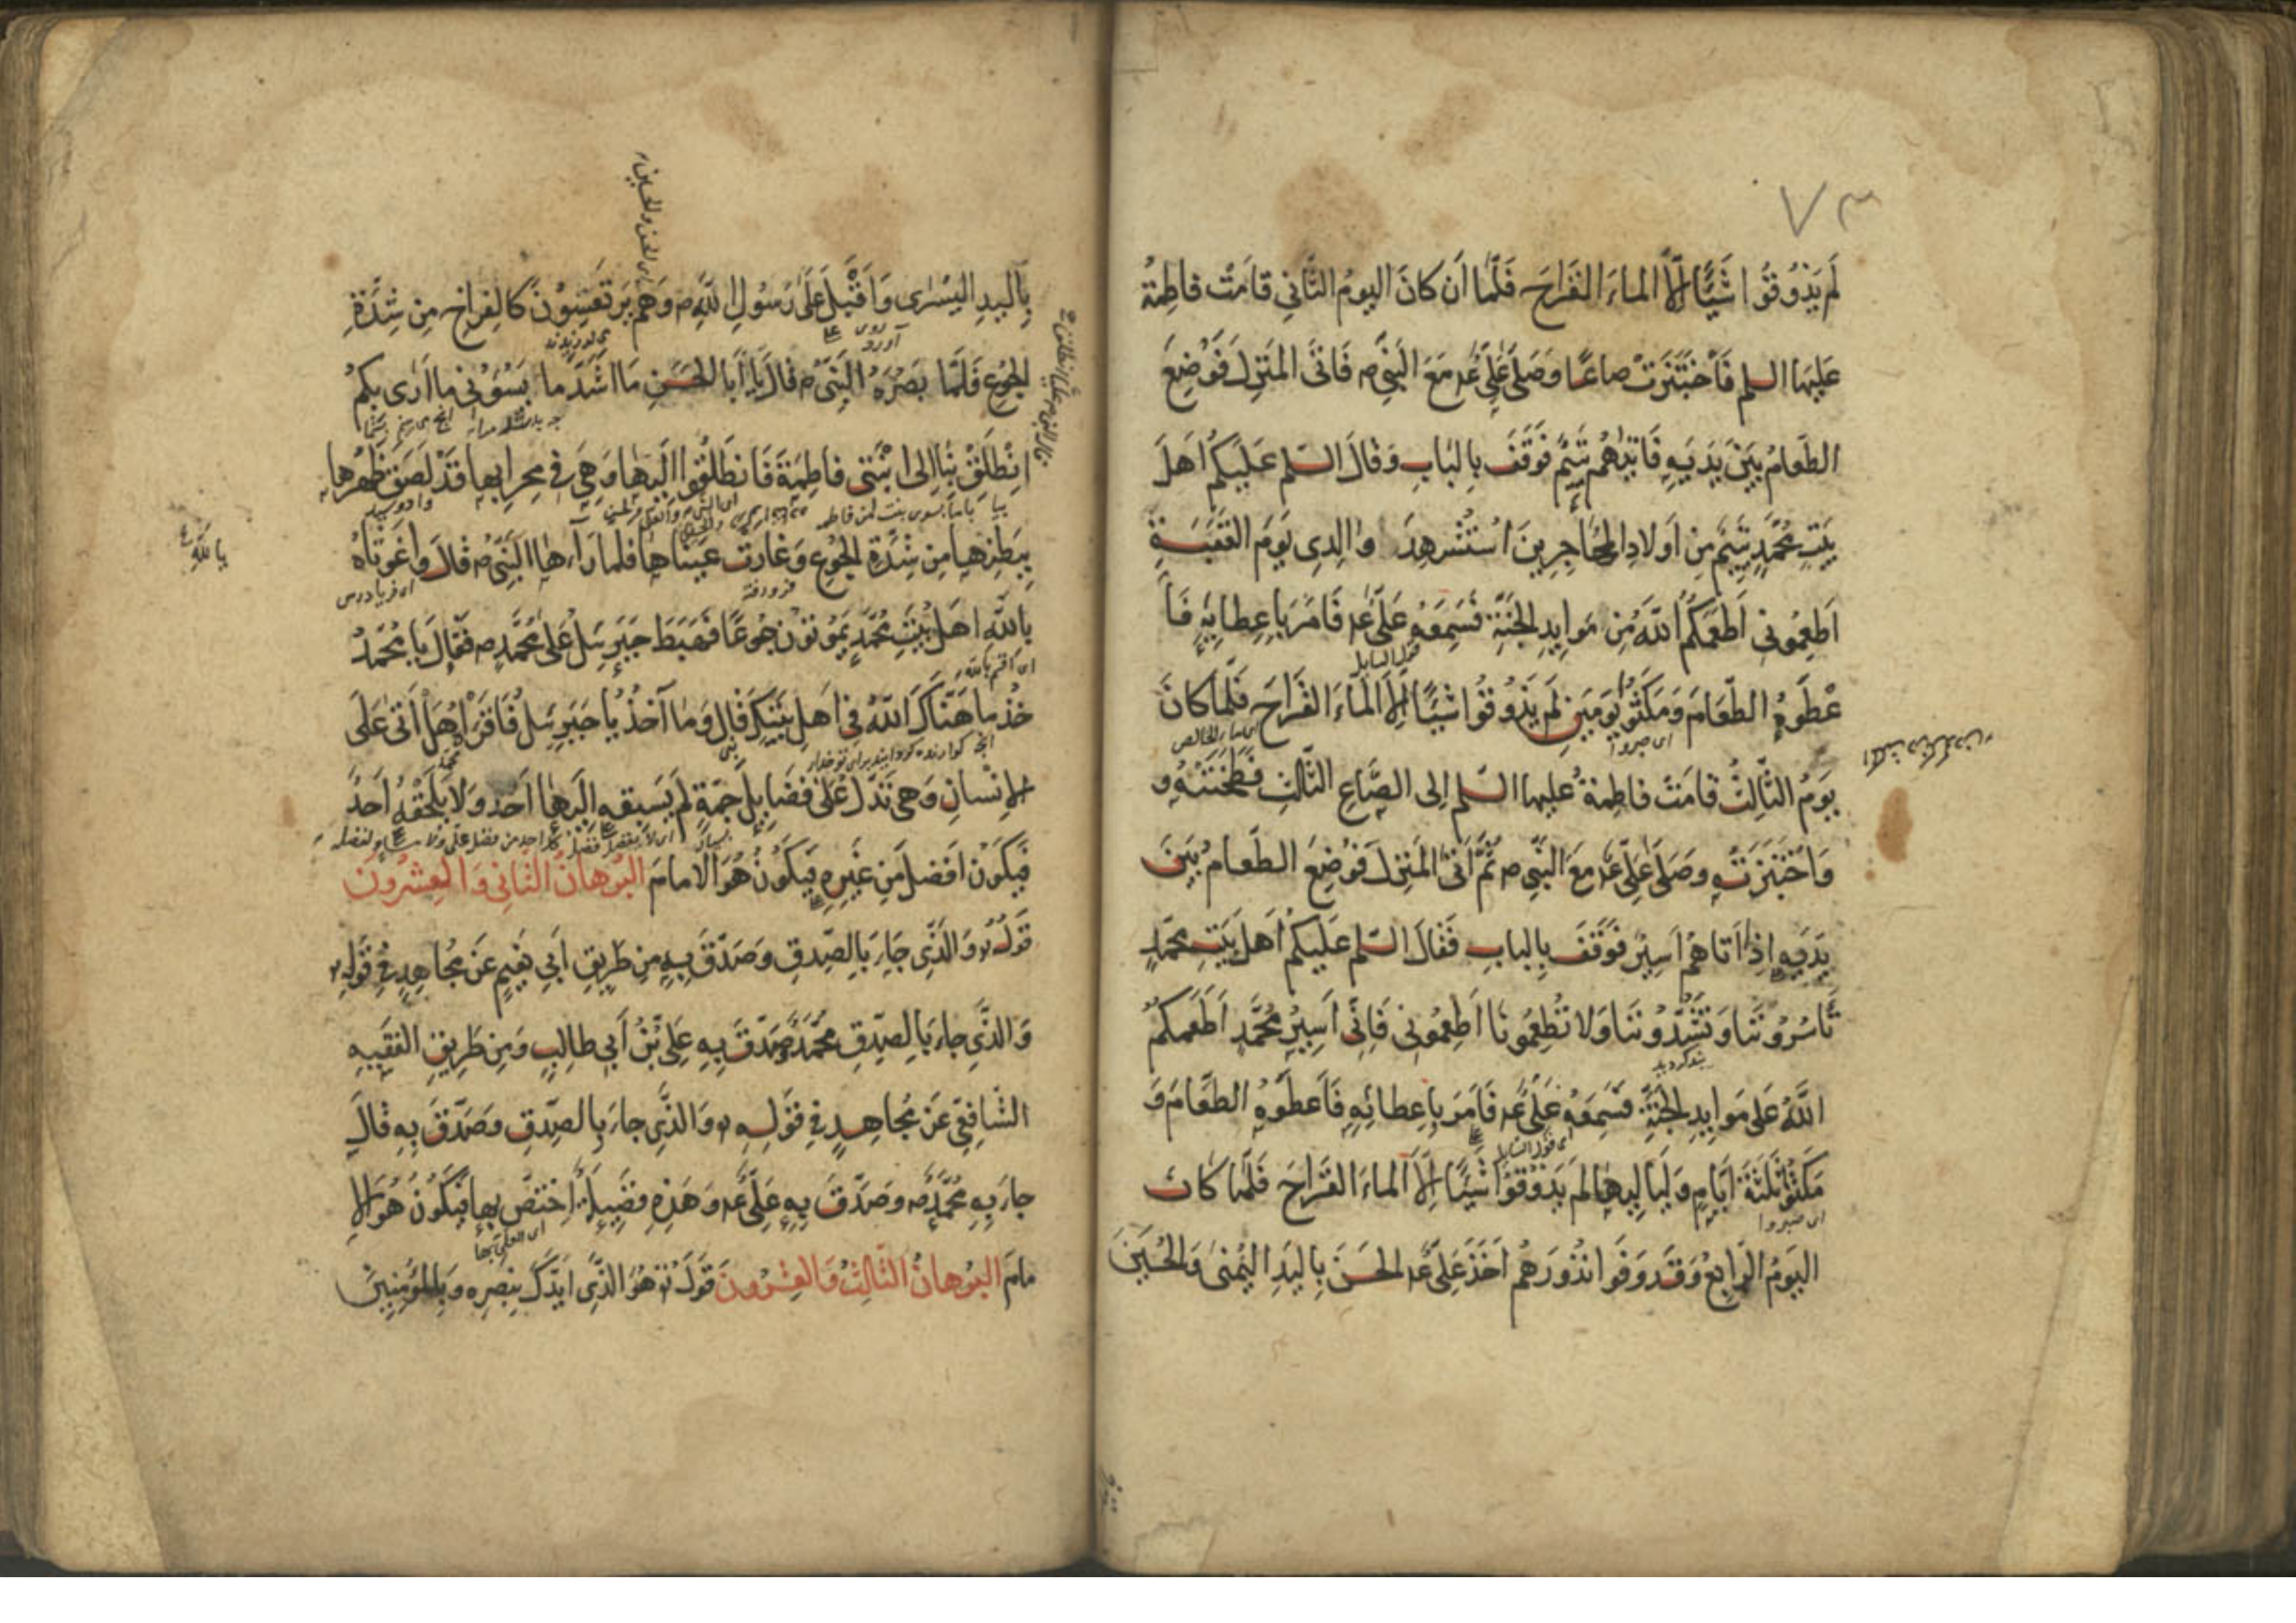 ٧٣
لَم يَذُوقُوا شَيْئًا إِلَّا الماءَ القَراحَ فَلَمّا اَن كانَ اليومُ الثّاني قامَتْ فاطِمةُ
عَلَيها السلم فَاخْتَبَزَتْ صاعًا وصَلّى عَلِيٌّ عم مَعَ النَّبِيِّ ص فَاَتَى المَنزِلَ فَوُضِعَ
الطَّعامُ بَيْنَ يَدَيهِ فَاَتاهُم يَتيمٌ فَوَقَفَ بِالبابِ وَقالَ السّلم عَلَيكُم اَهلَ
بَيتِ مُحَمَّدٍ يَتيمٌ مِن اَولادِ المُهاجِرينَ اسْتُشْهِدَ والِدى يَومَ العَقَبَةِ
اَطعِمُونى اَطعَمَكُمُ اللّهُ مِن مَوايِدِ الجَنَّةِ فَسَمِعَهُ عَلىٌّ عم فَاَمَرَ بِاِعطايِهِ فَاَ
عْطَوهُ الطَّعامَ وَمَكَثُوا يَومَينِ لَم يَذُوقُوا شَيْئًا اِلّا الماءَ القَراحَ فَلَمّا كانَ
اى صبروا
يَومُ الثّالِثُ قامَتْ فاطِمةُ عليها السّلم اِلى الصّاعِ الثّالِثِ فَطَحَنَتْهُ و
وَاخْتَبَزَتْهِ وصَلّى عَلىٌّ عم مَعَ النَّبِىِّ ص ثُمَّ اَتى المَنزِلَ فَوُضِعَ الطَّعامُ بَينَ
يَدَيهِ اِذا اَتاهُم اَسيرٌ فَوَقَفَ بِالبابِ فَقالَ السّلم عَلَيكُم اَهلَ بَيتِ مُحَمَّدٍ
تَاسُرُونَنا وَتَشُدُّونَنا وَلا تُطعِمُونا اَطعِمُونى فَاِنّى اَسيرُ مُحَمَّدٍ اَطعَمَكُمُ
بند کردید
اللّهُ عَلى مَوايِدِ الجَنَّةِ فَسَمِعَهُ عَلىٌّ عم فَاَمَرَ بِاِعطائِهِ فَاَعطَوهُ الطَّعامَ وَ
اى قول السايل
مَكَثُوا ثَلثَةَ اَيّامٍ وَلَياليها لَم يَذُوقُوا شَيْئًا اِلّا الماءَ القَراحَ فَلَمّا كانَ
اى صبروا
اليَومُ الرّابِعُ وَقَد وَفَوا نُذُورَهُم اَخَذَ عَلىٌّ عم الحَسَنَ بِاليَدِ اليُمنى وَالحُسَينَ
اى الحسن والحسين
بِاليَدِ اليُسرى وَاَقْبَلَ عَلى رَسُولِ اللّهِ ص وَهُم يَرتَعِشُونَ كَالفِراخِ مِن شِدَّةِ
الجُوعِ فَلَمّا بَصُرَهُ النَّبِىُّ ص قالَ يا اَبا الحَسَنِ ما اَشَدَّ ما يَسُؤُنى ما اَرى بِكُم
اِنْطَلِقْ بِنا اِلى ابْنَتى فاطِمَةَ فَانطَلَقُوا اِلَيها وَهِىَ فى مِحرابِها قَد لَصِقَ ظَهْرُها
بِبَطنِها مِن شِدَّةِ الجُوعِ وَغارَت عَيناها فَلَمّا رَآءَها النَّبِىُّ ص قالَ واغَوثاهُ
فرو رفته
اى فریادرس
يا للّه
بِاللّهِ اَهلُ بَيتِ مُحَمَّدٍ يَمُوتُونَ جُوعًا فَهَبَطَ جَبرَئيلُ عَلى مُحَمَّدٍ ص فَقالَ يا مُحَمَّدُ
اى اقسم باللّه
خُذْ ما هَنّاكَ اللّهُ فى اَهلِ بَيتِكَ قالَ وَما آخُذُ يا جَبرَئيلُ فَاَقرَاَهُ هَل اَتى عَلَى
الاِنسانِ وَهى تَدُلُّ عَلى فَضايِلَ جَمَّةٍ لَم يَسبِقهِ اِلَيها اَحَدٌ وَلا يَلحَقُهُ اَحَدٌ
فَيَكُونُ اَفضَلَ مِن غَيرِهِ فَيَكُونُ هُوَ الامامَ البُرهانُ الثّانى وَالعِشرُونَ
قَولُهُ وَالَّذى جاءَ بِالصِّدقِ وصَدَّقَ بِهِ مِن طَريقِ اَبى نَعيمٍ عَن مُجاهِدٍ فى قَولِهِ
وَالَّذى جاءَ بِالصِّدقِ مُحَمَّدٌ وصَدَّقَ بِهِ عَلىُّ بْنُ اَبى طالِبٍ وَمِن طَريقِ الفَقيهِ
الشّافِعىِّ عَن مُجاهِدٍ فى قَولِهِ وَالَّذى جاءَ بِالصِّدقِ وَصَدَّقَ بِهِ قالَ
جاءَ بِهِ مُحَمَّدٌ ص وصَدَّقَ بِهِ عَلىٌّ عم وَهَذِهِ فَضيلَةٌ اِختَصَّ بِها فَيَكُونُ هُوَ الا
مامَ البُرهانُ الثّالِثُ وَالعِشرُونَ قَولُهُ هُوَ الَّذى اَيَّدَكَ بِنَصرِهِ وَبِالمُؤمِنينَ